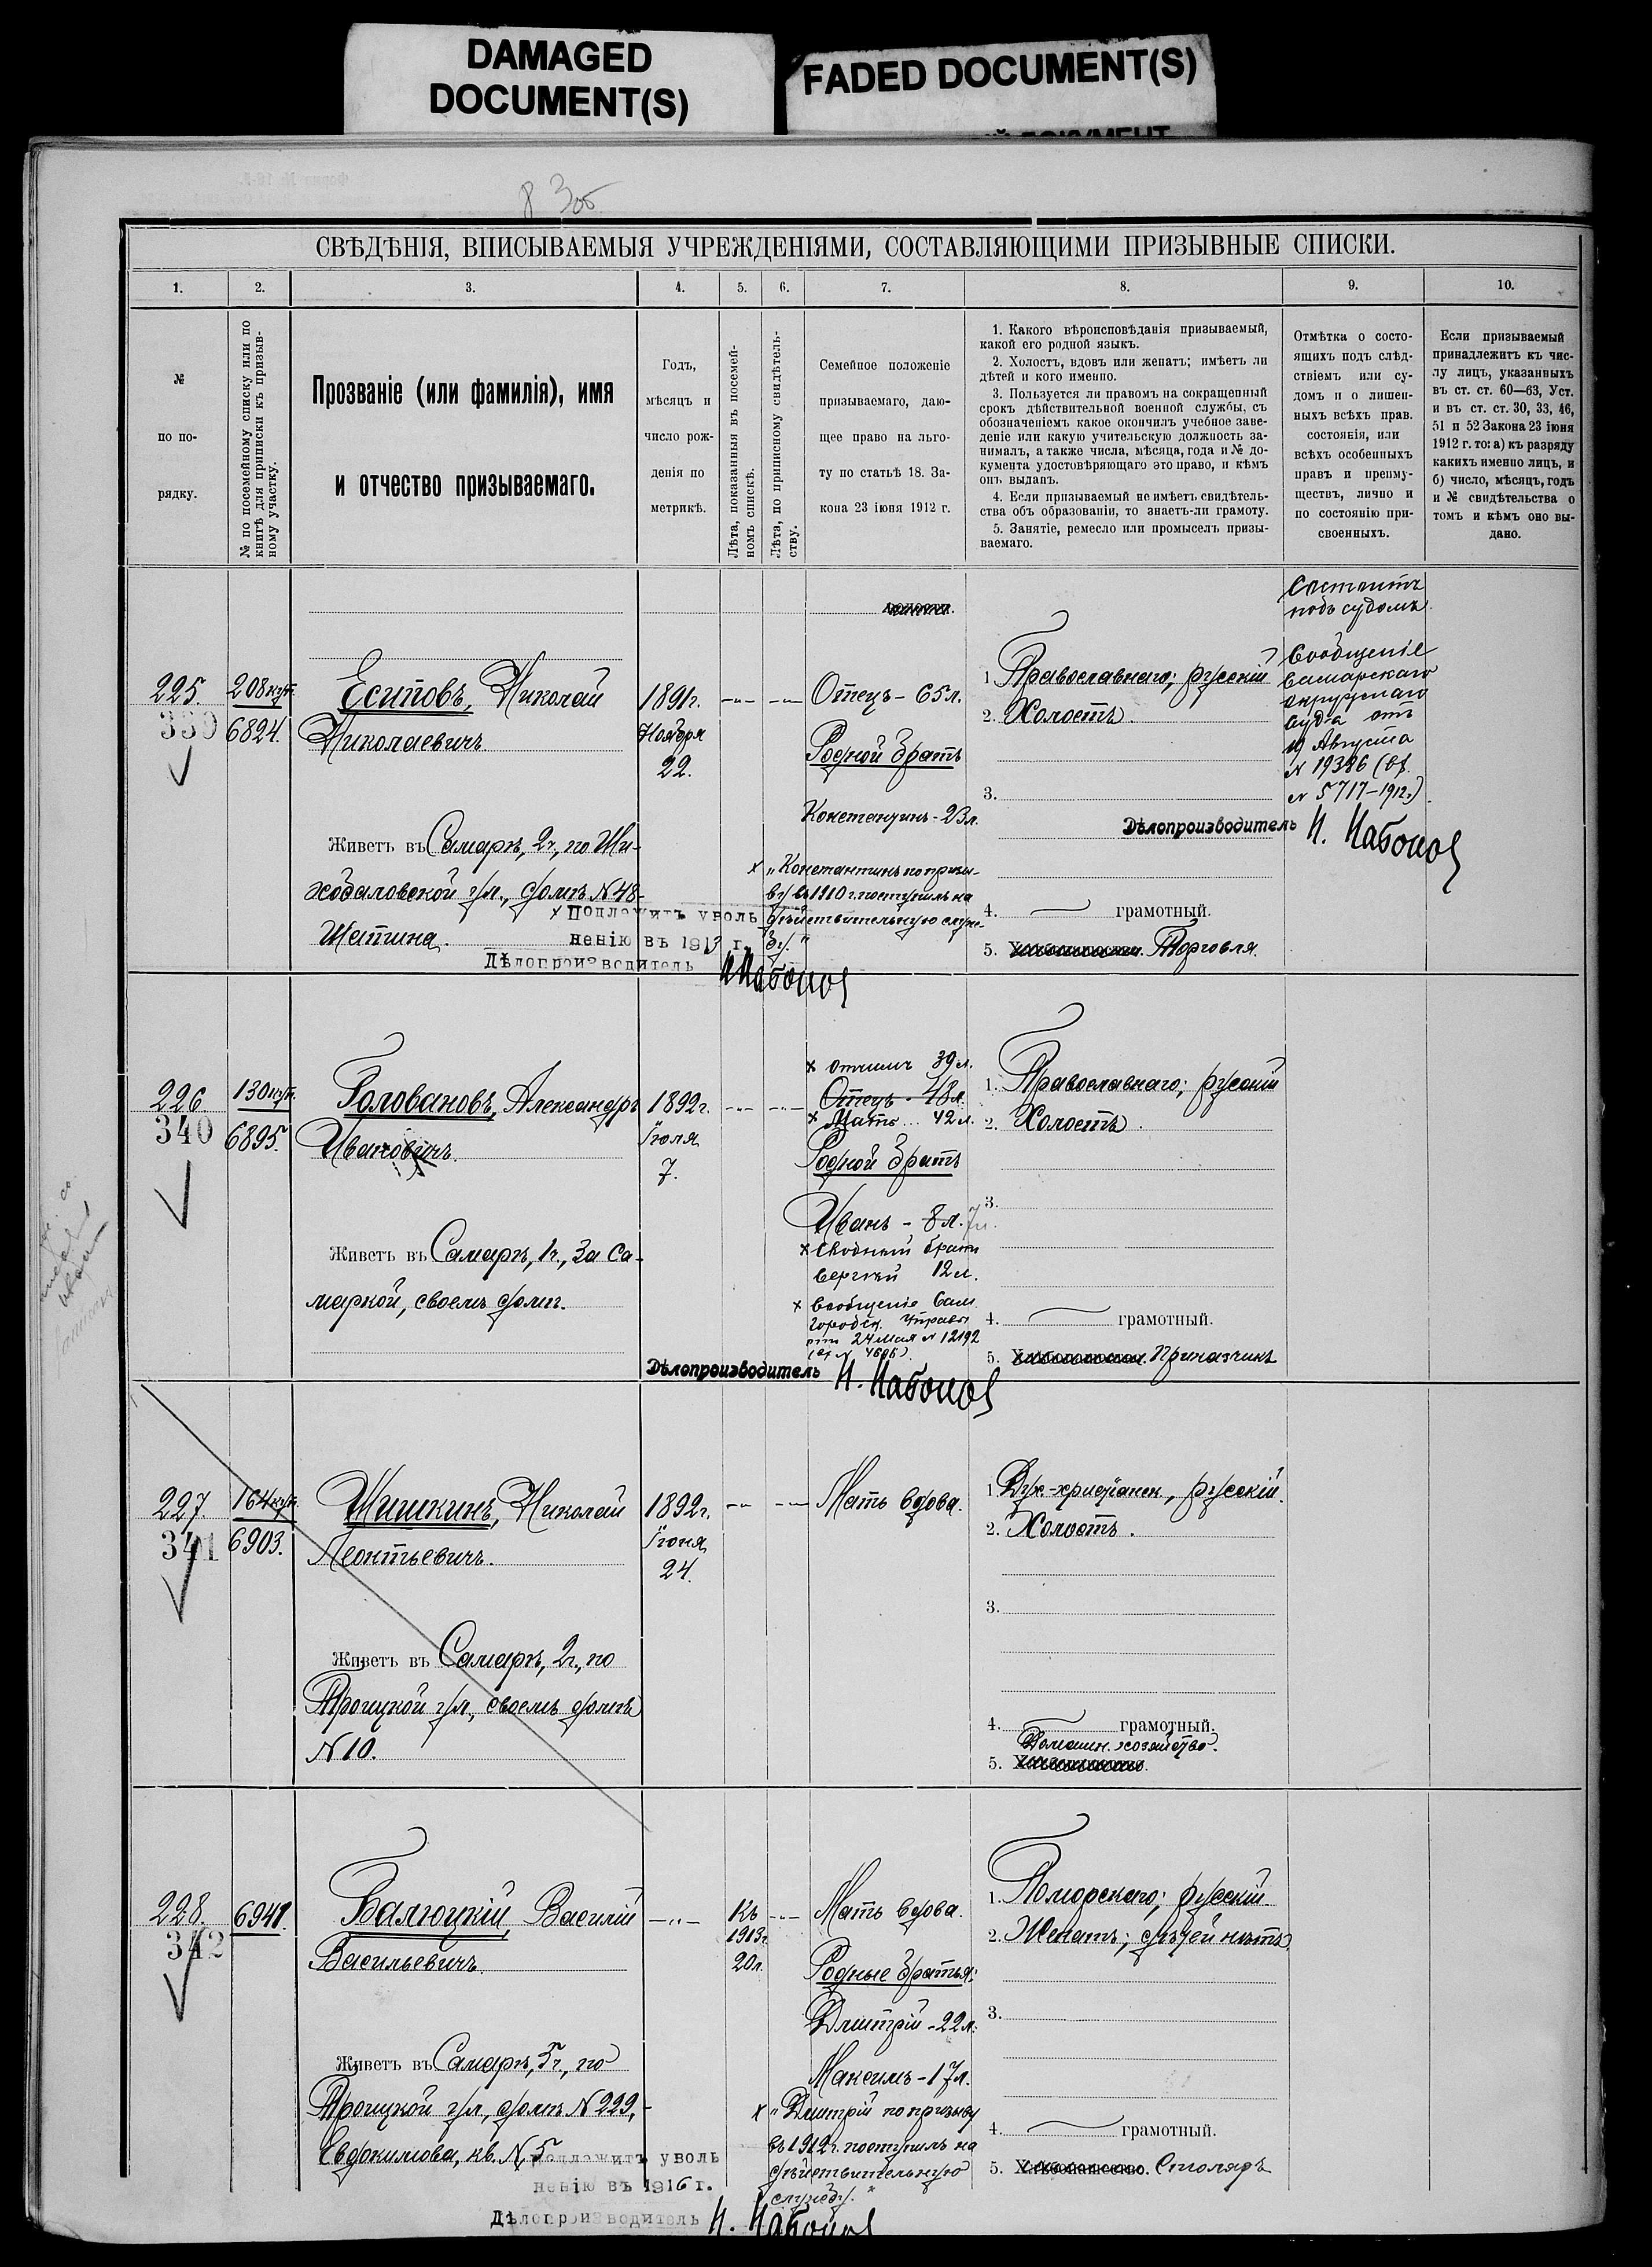 DAMAGED
DOCUMENT(S)
FADED DOCUMENT(S)
СВѢДѢНІЯ, ВПИСЫВАЕМЫЯ УЧРЕЖДЕНІЯМИ, СОСТАВЛЯЮЩИМИ ПРИЗЫВНЫЕ СПИСКИ.
1.
2.
3.
4.
5.
6.
7.
8.
9.
10.
№
по по-
рядку.
№ по посемейному списку или по
книгѣ для приписки къ призыв-
ному участку.
Прозваніе (или фамилія), имя
и отчество призываемаго.
Годъ,
мѣсяцъ и
число рож-
денія по
метрикѣ.
Лѣта, показанныя въ посемей-
номъ спискѣ.
Лѣта, по приписному свидѣтель-
ству.
Семейное положеніе
призываемаго, даю-
щее право на льго-
ту по статьѣ 18. За-
кона 23 іюня 1912 г.
1. Какого вѣроисповѣданія призываемый,
какой его родной языкъ.
2. Холостъ, вдовъ или женатъ; имѣетъ ли
дѣтей и кого именно.
3. Пользуется ли правомъ на сокращенный
срокъ дѣйствительной военной службы, съ
обозначеніемъ какое окончилъ учебное заве-
деніе или какую учительскую должность за-
нималъ, а также числа, мѣсяца, года и № до-
кумента удостовѣряющаго это право, и кѣмъ
онъ выданъ.
4. Если призываемый не имѣетъ свидѣтель-
ства объ образованіи, то знаетъ-ли грамоту.
5. Занятіе, ремесло или промыселъ призы-
ваемаго.
Отмѣтка о состо-
ящихъ подъ слѣд-
ствіемъ или су-
домъ и о лишен-
ныхъ всѣхъ прав.
состоянія, или
всѣхъ особенныхъ
правъ и преиму-
ществъ, лично и
по состоянію при-
своенныхъ.
Если призываемый
принадлежитъ къ чис-
лу лицъ, указанныхъ
въ ст. ст. 60—63, Уст.
и въ ст. ст. 30, 33, 46,
51 и 52 Закона 23 іюня
1912 г. то: а) къ разряду
какихъ именно лицъ, и
б) число, мѣсяцъ, годъ
и № свидѣтельства о
томъ и кѣмъ оно вы-
дано.
225.
339
208 куп.
6824.
Есиповъ, Николай
Николаевичъ
Живетъ въ Самарѣ, 2ч, по
ул., домъ N 48-
1891г.
Ноября
22.
Отецъ - 65 л.
Родной братъ
Константинъ - 23 л.
х „Константинъ по призы-
ву въ 1910 г. поступилъ на
дѣйствительную служ-
бу."
х Подлежитъ уволь
ненію въ 1913 г.
Дѣлопроизводитель
1. Православнаго; русскій
2. Холостъ.
3.
4. грамотный.
5. Торговля.
Состоитъ
подъ судомъ.
Сообщеніе
Самарскаго
окружнаго
суда отъ
19 Августа
N 19386 (вх.
N 5717-1912г.)
Дѣлопроизводитель
226.
340
130 куп.
6895.
Головановъ, Александръ
Ивановичъ
Живетъ въ Самарѣ, 1ч., За Са-
маркой, своемъ домѣ.
1892г.
Іюля
7.
х отчимъ 39 л.
Отецъ - 48 л.
х Мать... 42 л.
Родной братъ
Иванъ - 8 л. 7 л.
х Сводный братъ
Сергѣй 12 л.
х Сообщеніе Сам.
Городск. Управы
отъ 24 мая N 12192
Дѣлопроизводитель
1. Православнаго; русскій
2. Холостъ.
3.
4. грамотный.
5. Приказчикъ
227.
341
164 куп.
6903.
Шишкинъ, Николай
Леонтьевичъ.
Живетъ въ Самарѣ, 2ч., по
Троицкой ул., своемъ домѣ
N 10.
1892г.
Іюня
24.
Мать вдова.
1. Дух.-христіанск., русскій.
2. Холостъ.
3.
4. грамотный.
Домашн. хозяйство.
5. Хлѣбопашество.
228.
342
6941.
Балюцкій, Василій
Васильевичъ.
Живетъ въ Самарѣ, 5ч., по
Троицкой ул, домъ N 229,-
Евдокимова, кв. N 5
Къ
1913г.
20 л.
Мать вдова.
Родные братья:
Дмитрій - 22 л.
Максимъ - 17 л.
х „Дмитрій по призыву
въ 1912 г. поступилъ на
дѣйствительную
службу."
Подлежитъ уволь
ненію въ 1916 г.
Дѣлопроизводитель
1. Поморскаго; русскій
2. Женатъ; дѣтей нѣтъ.
3.
4. грамотный.
5. Хлѣбопашество. Столяръ